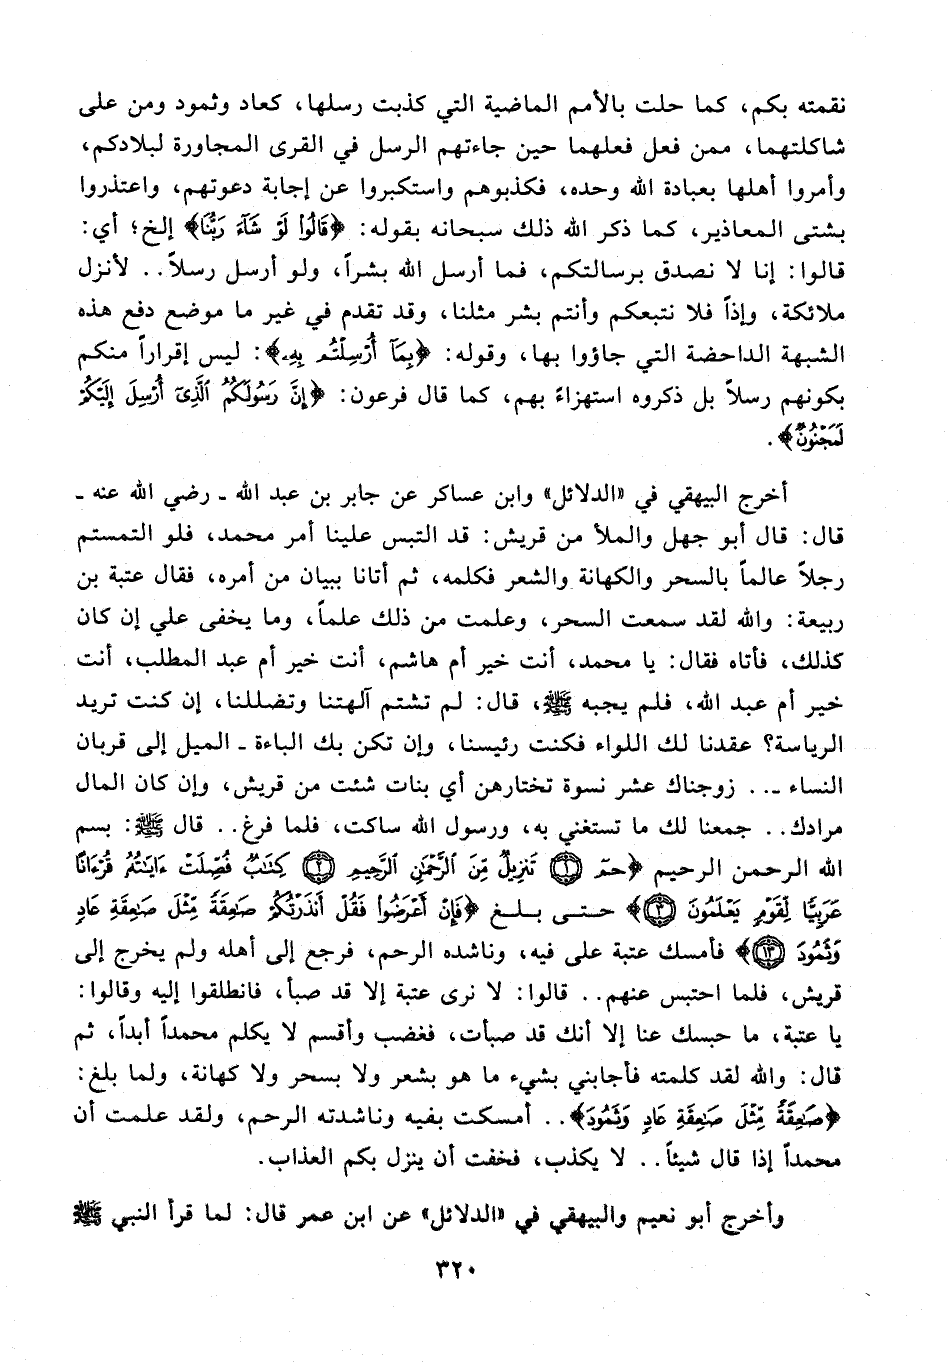 نقمته بكم، كما حلت بالأمم الماضية التي كذبت رسلها، كعاد وثمود ومن على
شاكلتهما، ممن فعل فعلهما حين جاءتهم الرسل في القرى المجاورة لبلادكم،
وأمروا أهلها بعبادة الله وحده، فكذبوهم واستكبروا عن إجابة دعوتهم، واعتذروا
بشتى المعاذير، كما ذكر الله ذلك سبحانه بقوله: ﴿قَالُوا۟ لَوْ شَآءَ رَبُّنَا﴾ إلخ؛ أي:
قالوا: إنا لا نصدق برسالتكم، فما أرسل الله بشراً، ولو أرسل رسلاً.. لأنزل
ملائكة، وإذاً فلا نتبعكم وأنتم بشر مثلنا، وقد تقدم في غير ما موضع دفع هذه
الشبهة الداحضة التي جاؤوا بها، وقوله: ﴿بِمَآ أُرْسِلْتُم بِهِۦ﴾: ليس إقراراً منكم
بكونهم رسلاً بل ذكروه استهزاءً بهم، كما قال فرعون: ﴿إِنَّ رَسُولَكُمُ ٱلَّذِىٓ أُرْسِلَ إِلَيْكُمْ
لَمَجْنُونٌ﴾.
أخرج البيهقي في «الدلائل» وابن عساكر عن جابر بن عبد الله ـ رضي الله عنه ـ
قال: قال أبو جهل والملأ من قريش: قد التبس علينا أمر محمد، فلو التمستم
رجلاً عالماً بالسحر والكهانة والشعر فكلمه، ثم أتانا ببيان من أمره، فقال عتبة بن
ربيعة: والله لقد سمعت السحر، وعلمت من ذلك علماً، وما يخفى علي إن كان
كذلك، فأتاه فقال: يا محمد، أنت خير أم هاشم، أنت خير أم عبد المطلب، أنت
خير أم عبد الله، فلم يجبه ﷺ، قال: لم تشتم آلهتنا وتضللنا، إن كنت تريد
الرياسة؟ عقدنا لك اللواء فكنت رئيسنا، وإن تكن بك الباءة ـ الميل إلى قربان
النساء ـ.. زوجناك عشر نسوة تختارهن أي بنات شئت من قريش، وإن كان المال
مرادك.. جمعنا لك ما تستغني به، ورسول الله ساكت، فلما فرغ.. قال ﷺ: بسم
الله الرحمن الرحيم ﴿حمٓ ﴿١﴾ تَنزِيلٌ مِّنَ ٱلرَّحْمَٰنِ ٱلرَّحِيمِ ﴿٢﴾ كِتَٰبٌ فُصِّلَتْ ءَايَٰتُهُۥ قُرْءَانًا
عَرَبِيًّا لِّقَوْمٍ يَعْلَمُونَ ﴿٣﴾﴾ حتى بلغ ﴿فَإِنْ أَعْرَضُوا۟ فَقُلْ أَنذَرْتُكُمْ صَٰعِقَةً مِّثْلَ صَٰعِقَةِ عَادٍ
وَثَمُودَ ﴿١٣﴾﴾ فأمسك عتبة على فيه، وناشده الرحم، فرجع إلى أهله ولم يخرج إلى
قريش، فلما احتبس عنهم.. قالوا: لا نرى عتبة إلا قد صبأ، فانطلقوا إليه وقالوا:
يا عتبة، ما حبسك عنا إلا أنك قد صبأت، فغضب وأقسم لا يكلم محمداً أبداً، ثم
قال: والله لقد كلمته فأجابني بشيء ما هو بشعر ولا بسحر ولا كهانة، ولما بلغ:
﴿صَٰعِقَةً مِّثْلَ صَٰعِقَةِ عَادٍ وَثَمُودَ﴾.. أمسكت بفيه وناشدته الرحم، ولقد علمت أن
محمداً إذا قال شيئاً.. لا يكذب، فخفت أن ينزل بكم العذاب.
وأخرج أبو نعيم والبيهقي في «الدلائل» عن ابن عمر قال: لما قرأ النبي ﷺ
٣٢٠